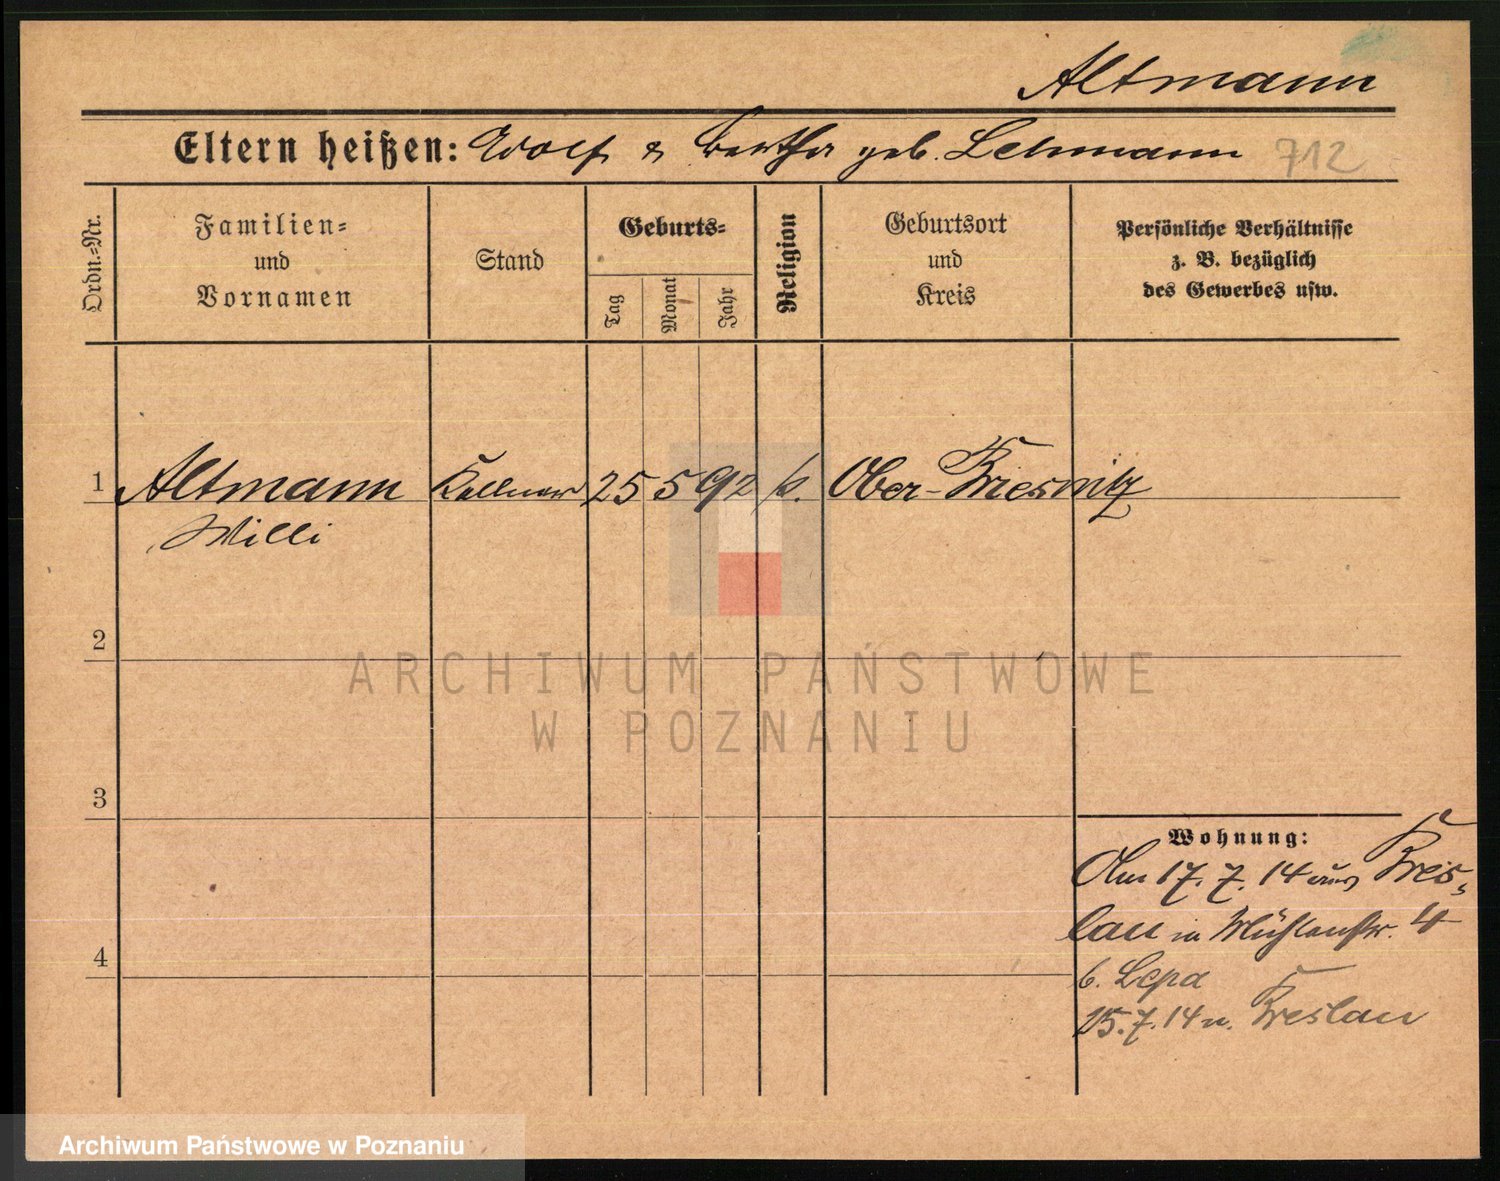 Altmann
Eltern heißen: Adolf & Bertha geb. Lehmann 712
Ordn.=Nr.
Familien=
und
Vornamen
Stand
Geburts=
Tag
Monat
Jahr
Religion
Geburtsort
und
Kreis
Persönliche Verhältnisse
z. B. bezüglich
des Gewerbes usw.
1 Altmann Kellner 25 5 92 k. Ober-Briesnitz
Willi
2
ARCHIWUM PAŃSTWOWE
W POZNANIU
3
Wohnung:
Am 17. 7. 14 aus Bres-
lau in Mühlenstr. 4
4
b. Lepa
25. 7. 14 n. Breslau
Archiwum Państwowe w Poznaniu